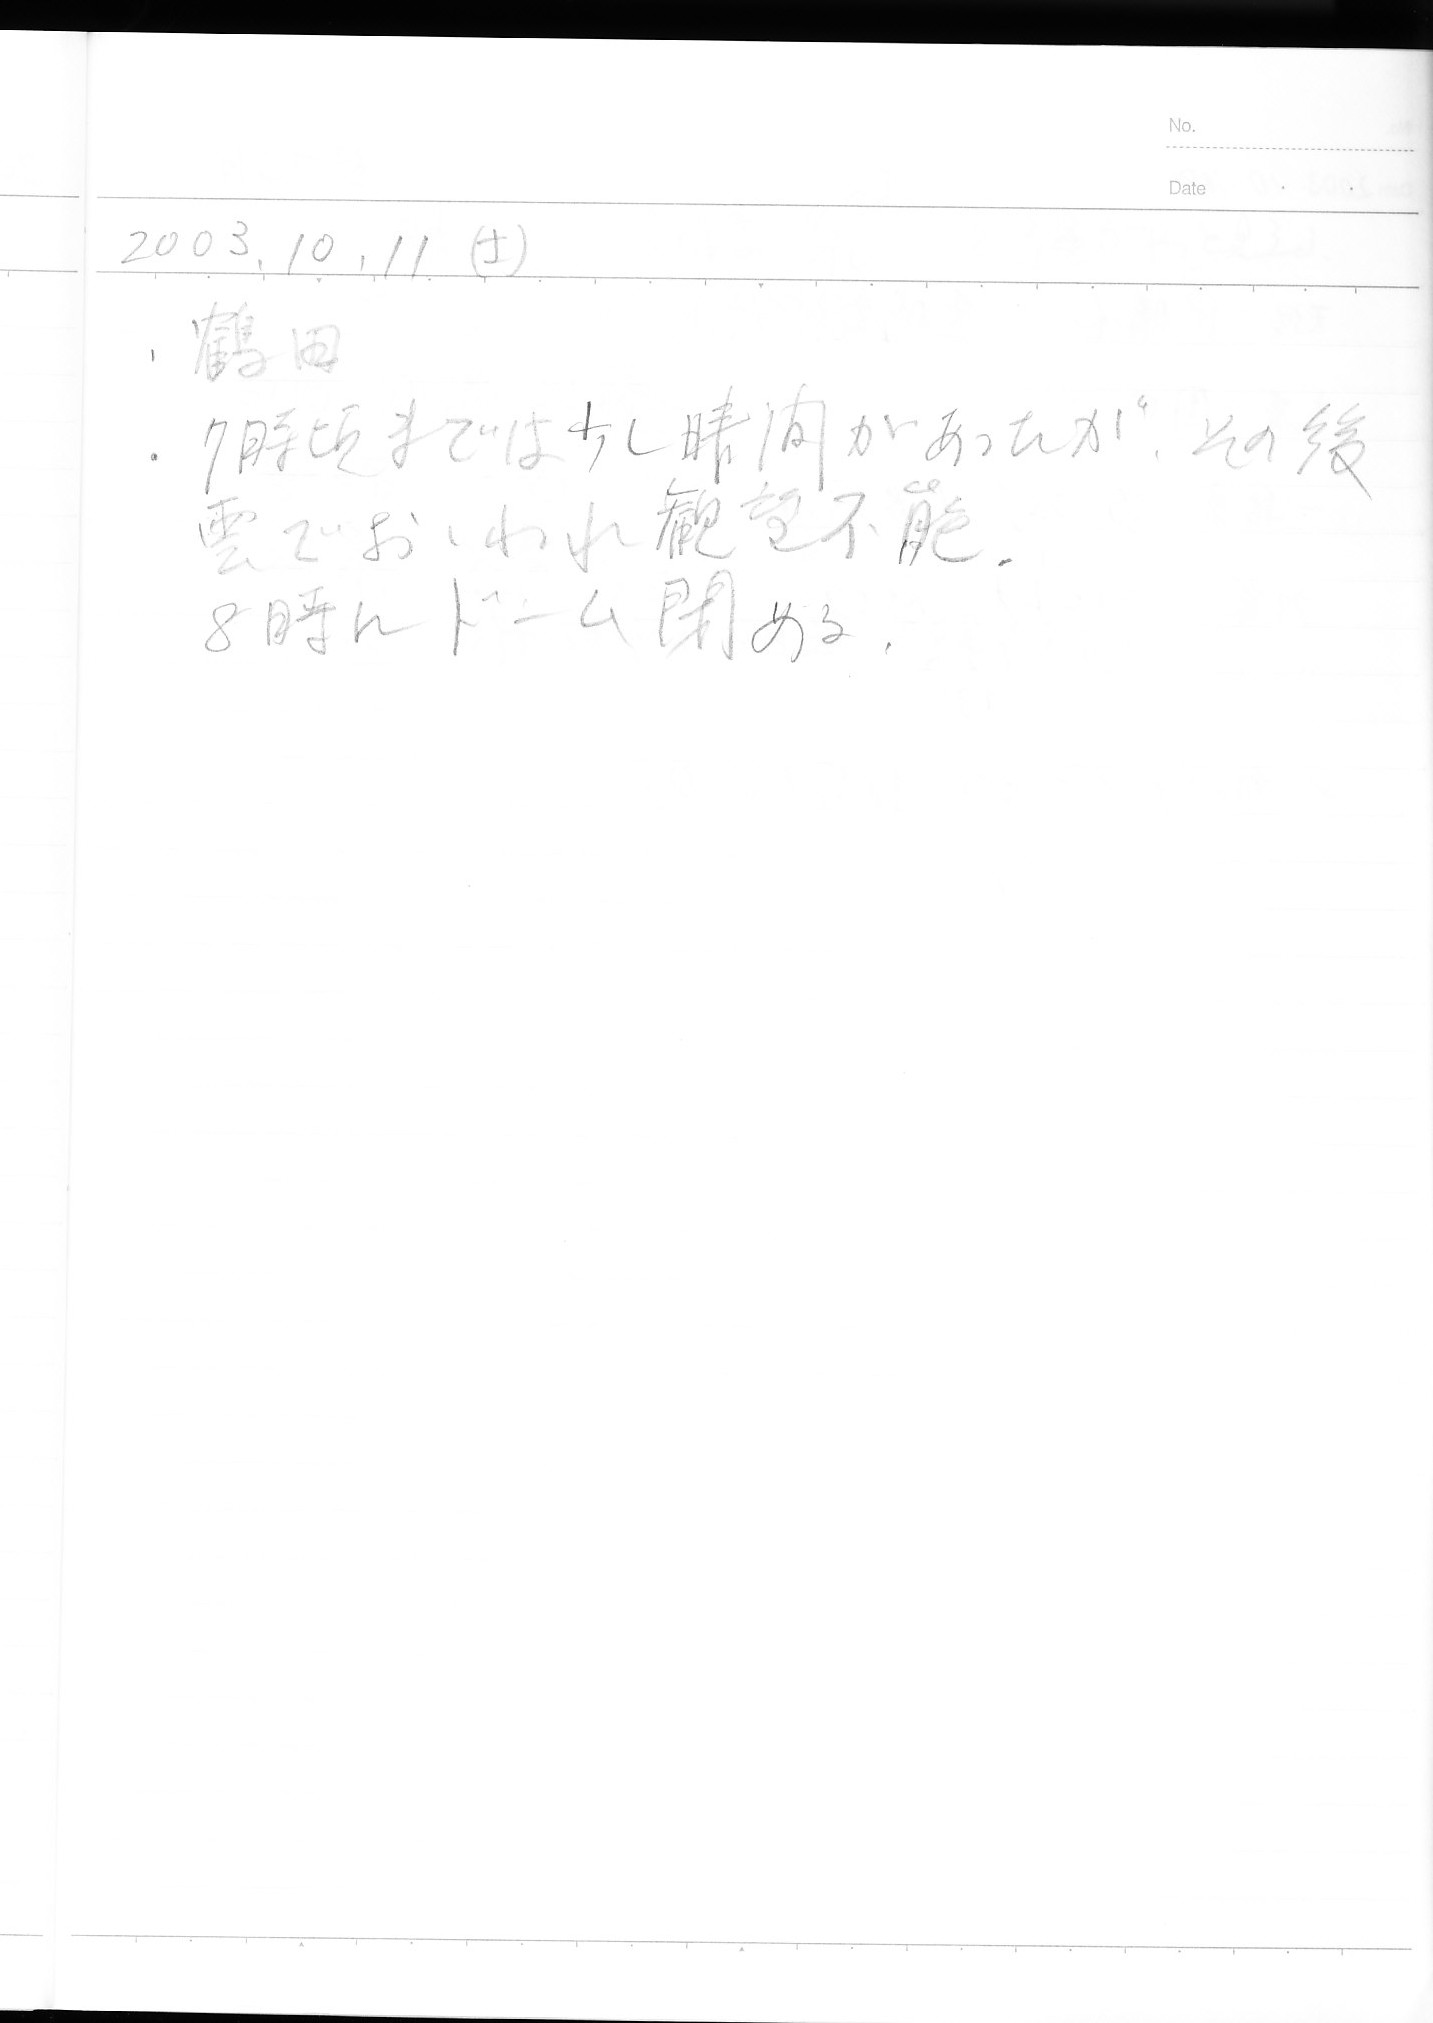 No.
Date
2003.10.11(土)
・鶴田
・7時頃までは少し晴間があったが、その後
雲でおいわれ観望不能.
8時にドーム閉める.